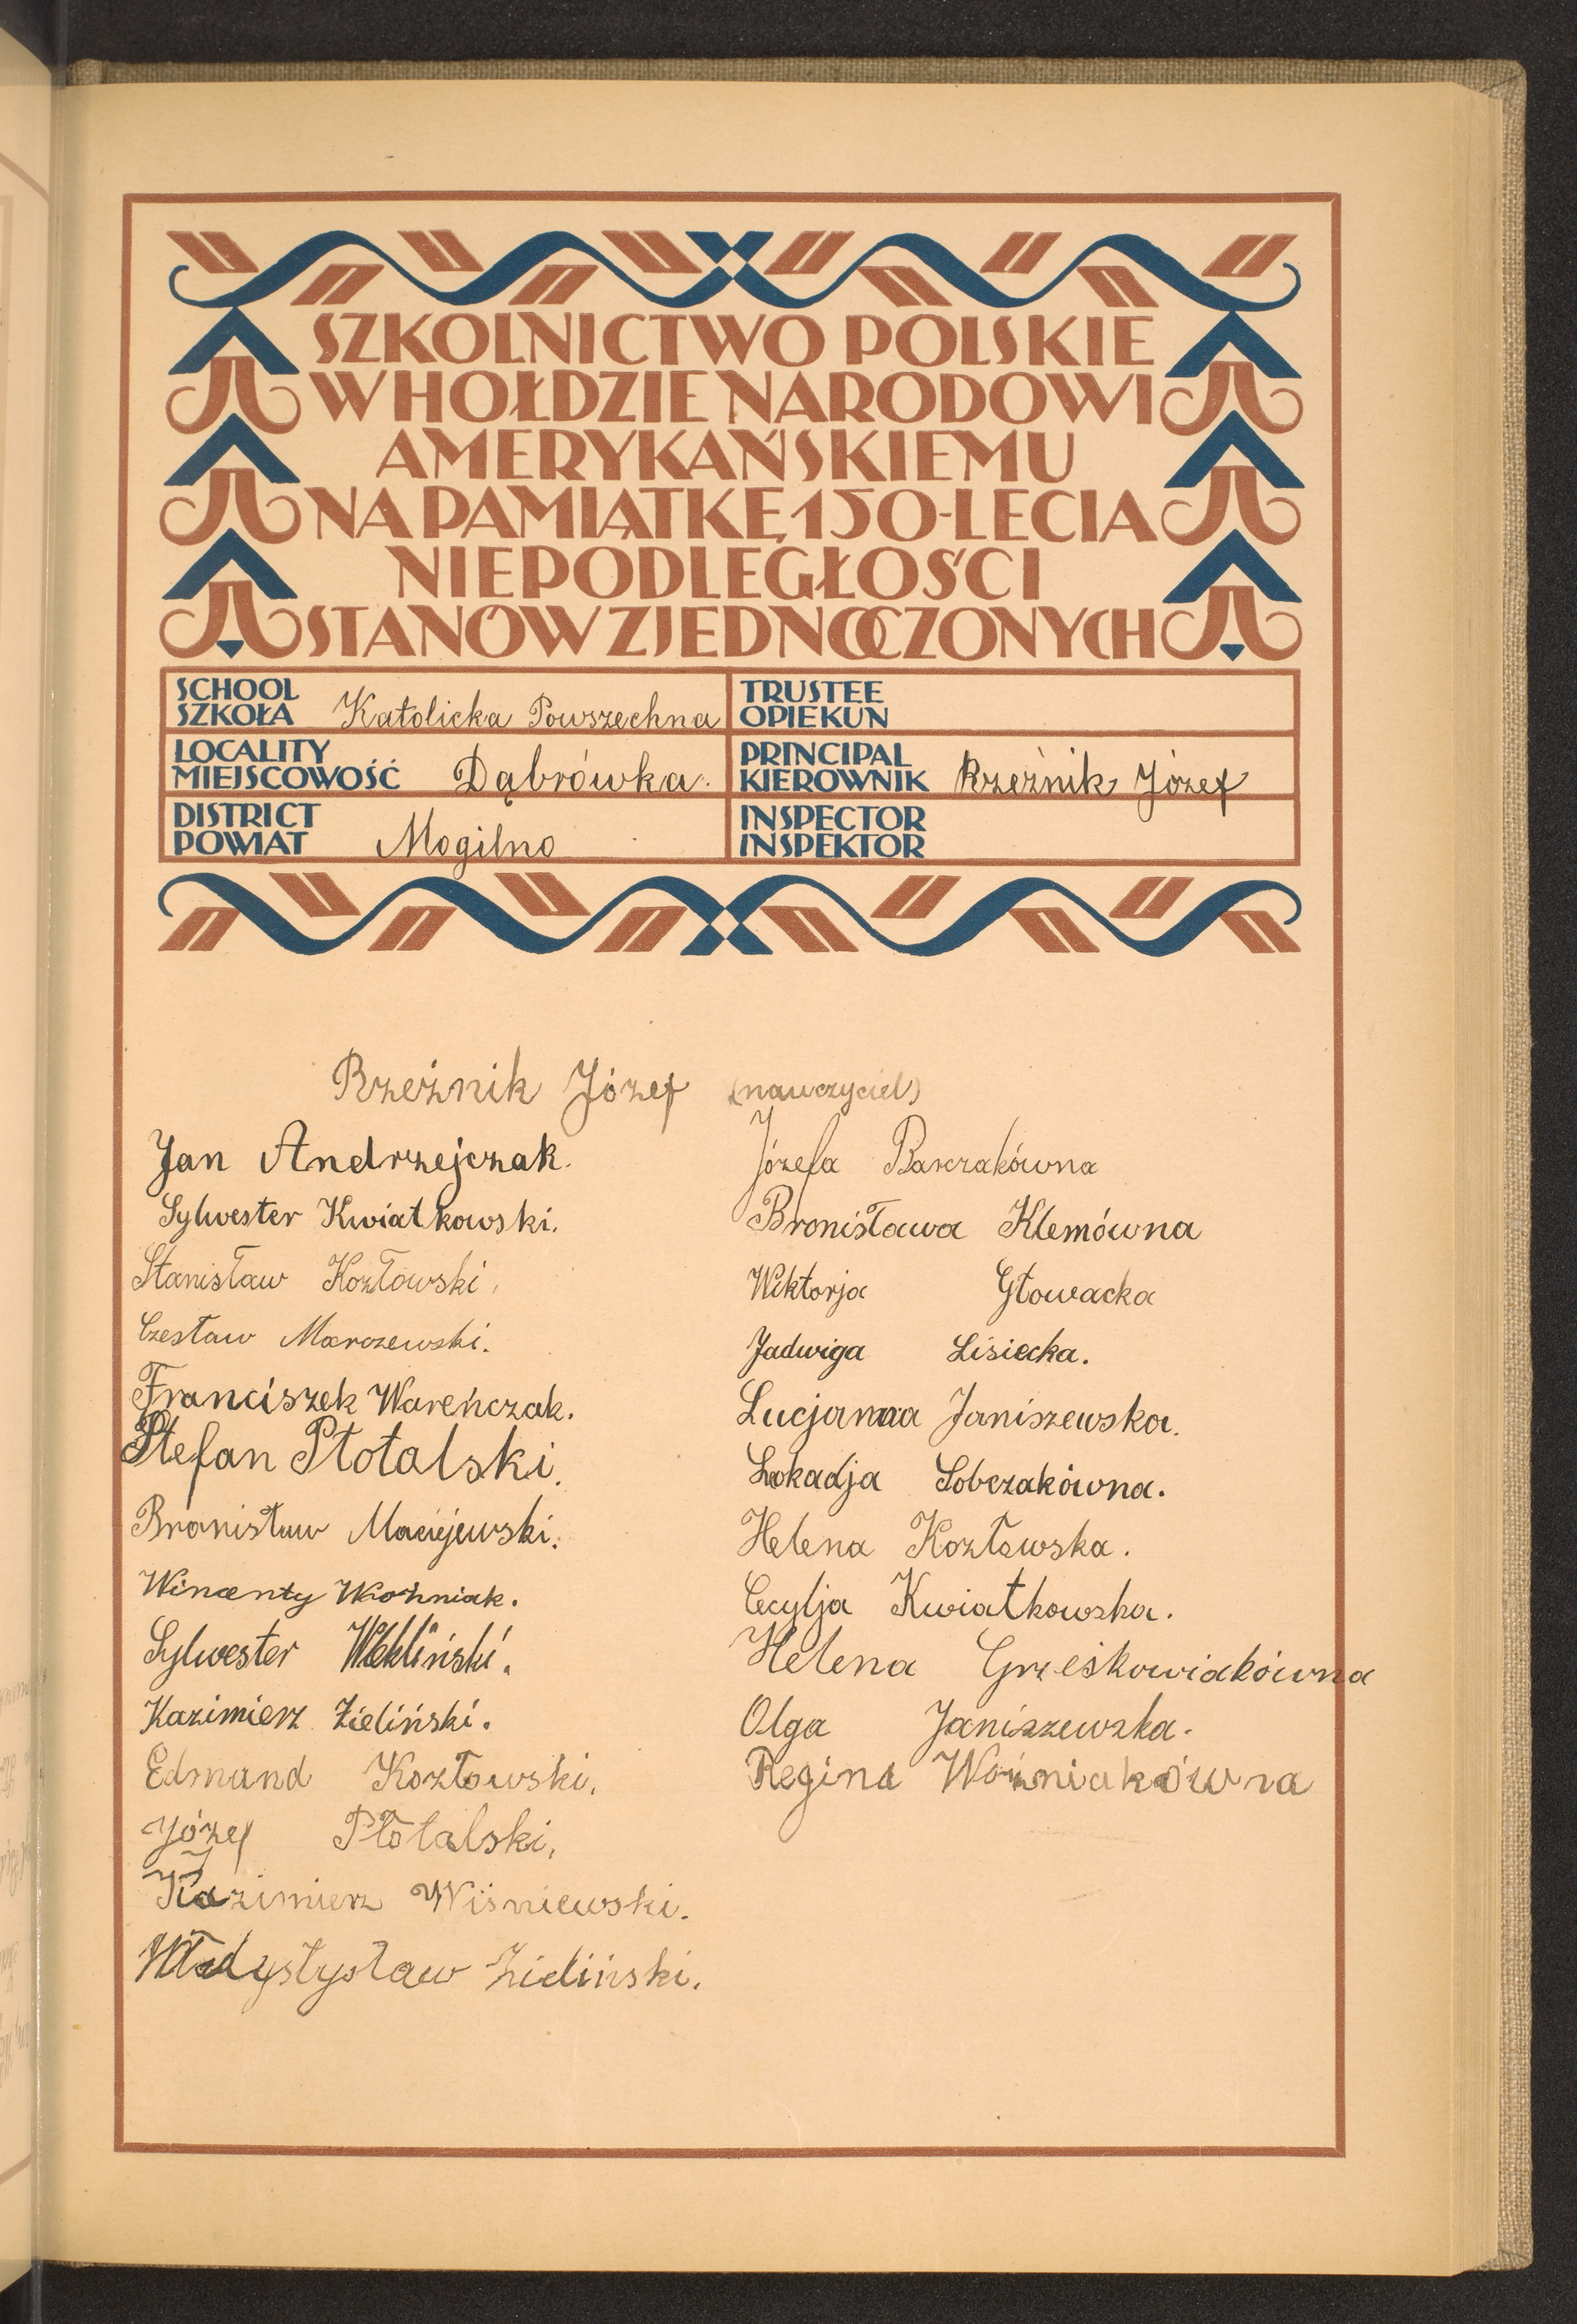 SZKOLNICTWO POLSKIE
W HOŁDZIE NARODOWI
AMERYKAŃSKIEMU
NA PAMIĄTKĘ 150-LECIA
NIEPODLEGŁOŚCI
STANÓW ZJEDNOCZONYCH
SCHOOL
SZKOŁA Katolicka Powszechna
LOCALITY
MIEJSCOWOŚĆ Dąbrówka.
DISTRICT
POWIAT Mogilno
TRUSTEE
OPIEKUN
PRINCIPAL
KIEROWNIK Rzeźnik Józef
INSPECTOR
INSPEKTOR
Rzeźnik Józef (nauczyciel)
Jan Andrzejczak.
Sylwester Kwiatkowski.
Stanisław Kozłowski.
Czesław Marczewski.
Franciszek Wareńczak.
Stefan Płotalski.
Bronisław Maciejewski.
Wincenty Woźniak.
Sylwester Wekliński.
Kazimierz Zieliński.
Edmand Kozłowski.
Józef Płotalski.
Kazimierz Wiśniewski.
Władystysław Zieliński.
Józefa Barczakówna
Bronisława Klemówna
Wiktorja Głowacka
Jadwiga Lisiecka.
Lucjanna Janiszewska.
Leokadja Sobczakówna.
Helena Kozłowska.
Cecylja Kwiatkowska.
Helena Grześkowiakówna
Olga Janiszewska.
Regina Woźniakówna